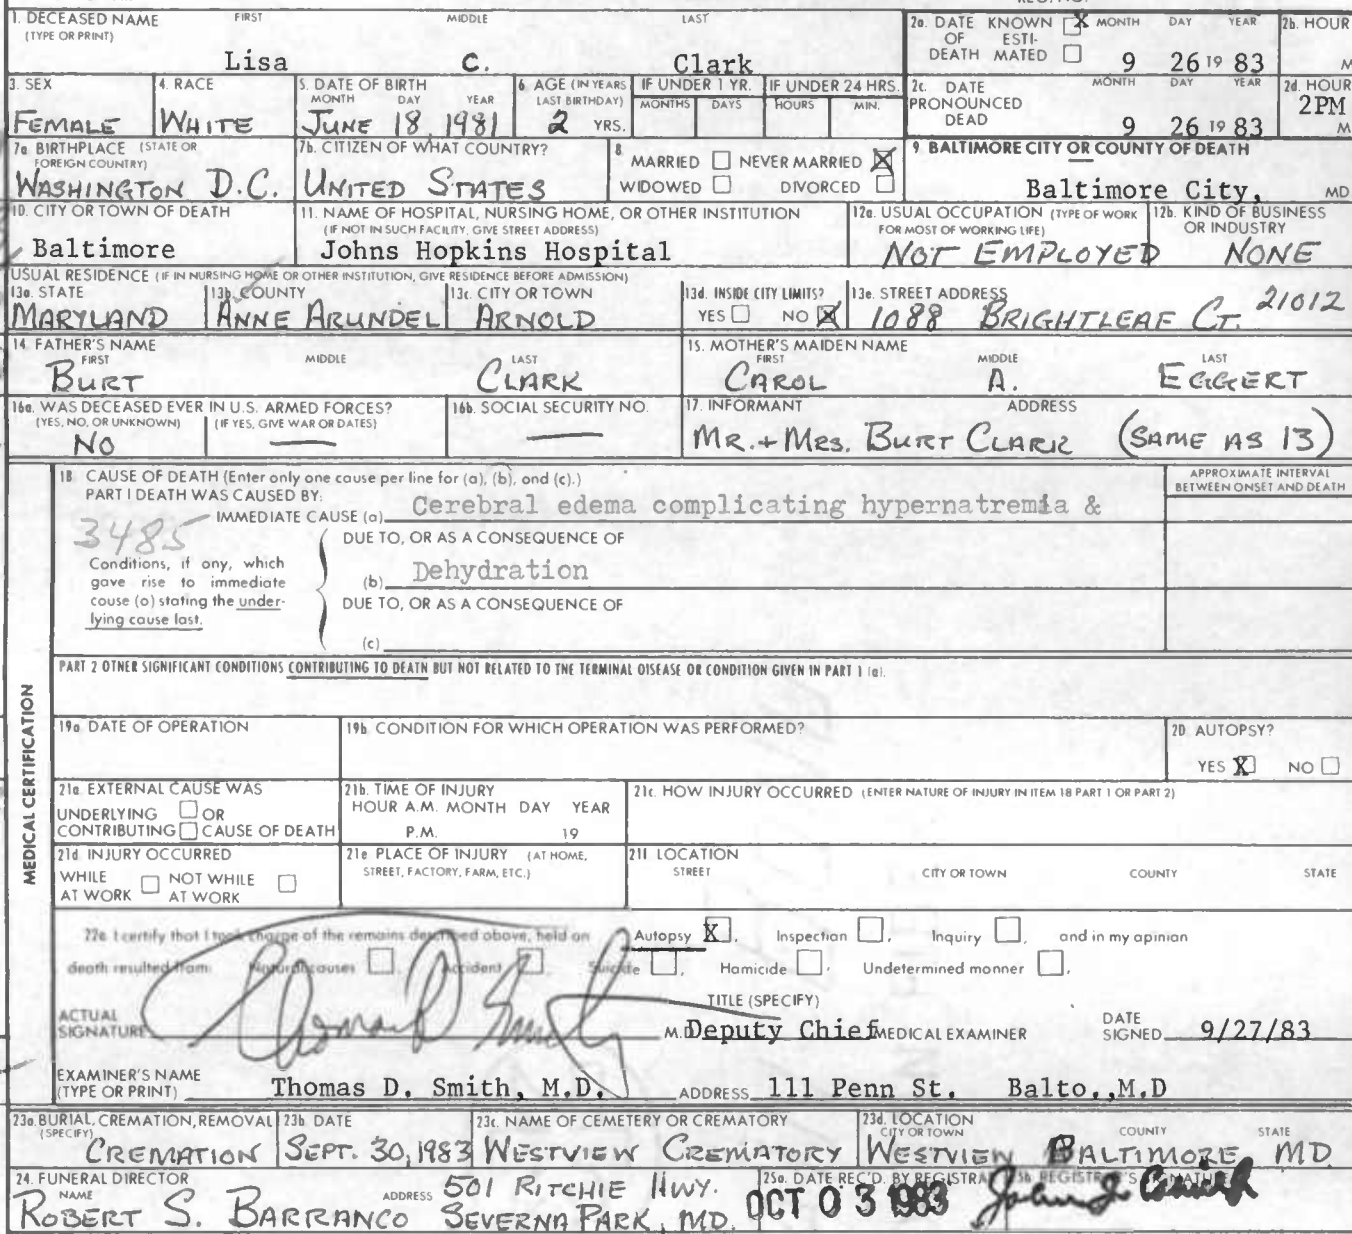 1. DECEASED NAME FIRST MIDDLE LAST
(TYPE OR PRINT)
Lisa C. Clark
2a. DATE KNOWN X MONTH DAY YEAR
OF ESTI-
DEATH MATED 9 26 19 83
2b. HOUR
M
3. SEX
FEMALE
4. RACE
WHITE
5. DATE OF BIRTH
MONTH DAY YEAR
JUNE 18, 1981
6. AGE (IN YEARS
LAST BIRTHDAY)
2 YRS.
IF UNDER 1 YR.
MONTHS DAYS
IF UNDER 24 HRS.
HOURS MIN.
2c. DATE MONTH DAY YEAR
PRONOUNCED
DEAD 9 26 19 83
2d. HOUR
2PM
M
7a. BIRTHPLACE (STATE OR
FOREIGN COUNTRY)
WASHINGTON D.C.
7b. CITIZEN OF WHAT COUNTRY?
UNITED STATES
8
MARRIED NEVER MARRIED X
WIDOWED DIVORCED
9. BALTIMORE CITY OR COUNTY OF DEATH
Baltimore City, MD
10. CITY OR TOWN OF DEATH
Baltimore
11. NAME OF HOSPITAL, NURSING HOME, OR OTHER INSTITUTION
(IF NOT IN SUCH FACILITY, GIVE STREET ADDRESS)
Johns Hopkins Hospital
12a. USUAL OCCUPATION (TYPE OF WORK
FOR MOST OF WORKING LIFE)
NOT EMPLOYED
12b. KIND OF BUSINESS
OR INDUSTRY
NONE
USUAL RESIDENCE (IF IN NURSING HOME OR OTHER INSTITUTION, GIVE RESIDENCE BEFORE ADMISSION)
13a. STATE
MARYLAND
13b. COUNTY
ANNE ARUNDEL
13c. CITY OR TOWN
ARNOLD
13d. INSIDE CITY LIMITS?
YES NO X
13e. STREET ADDRESS
1088 BRIGHTLEAF CT. 21012
14. FATHER'S NAME
FIRST MIDDLE LAST
BURT CLARK
15. MOTHER'S MAIDEN NAME
FIRST MIDDLE LAST
CAROL A. EGGERT
16a. WAS DECEASED EVER IN U.S. ARMED FORCES?
(YES, NO, OR UNKNOWN) (IF YES, GIVE WAR OR DATES)
NO —
16b. SOCIAL SECURITY NO.
—
17. INFORMANT ADDRESS
MR. + MRS. BURT CLARK (SAME AS 13)
MEDICAL CERTIFICATION
18 CAUSE OF DEATH (Enter only one cause per line for (a), (b), and (c).)
PART I DEATH WAS CAUSED BY:
APPROXIMATE INTERVAL
BETWEEN ONSET AND DEATH
IMMEDIATE CAUSE (a) Cerebral edema complicating hypernatremia &
3485
DUE TO, OR AS A CONSEQUENCE OF
Conditions, if any, which
gave rise to immediate
cause (a) stating the under-
lying cause last.
(b) Dehydration
DUE TO, OR AS A CONSEQUENCE OF
(c)
PART 2 OTHER SIGNIFICANT CONDITIONS CONTRIBUTING TO DEATH BUT NOT RELATED TO THE TERMINAL DISEASE OR CONDITION GIVEN IN PART 1 (a).
19a. DATE OF OPERATION
19b. CONDITION FOR WHICH OPERATION WAS PERFORMED?
20. AUTOPSY?
YES X NO
21a. EXTERNAL CAUSE WAS
UNDERLYING OR
CONTRIBUTING CAUSE OF DEATH
21b. TIME OF INJURY
HOUR A.M. MONTH DAY YEAR
P.M. 19
21c. HOW INJURY OCCURRED (ENTER NATURE OF INJURY IN ITEM 18 PART 1 OR PART 2)
21d. INJURY OCCURRED
WHILE NOT WHILE
AT WORK AT WORK
21e. PLACE OF INJURY (AT HOME,
STREET, FACTORY, FARM, ETC.)
21f. LOCATION
STREET CITY OR TOWN COUNTY STATE
22a. I certify that I took charge of the remains described above, held an Autopsy X, Inspection , Inquiry , and in my opinion
death resulted from: Natural causes , Accident , Suicide , Homicide , Undetermined manner .
ACTUAL
SIGNATURE Thomas D. Smith M.D.
TITLE (SPECIFY)
Deputy Chief MEDICAL EXAMINER
DATE
SIGNED 9/27/83
EXAMINER'S NAME
(TYPE OR PRINT) Thomas D. Smith, M.D. ADDRESS 111 Penn St. Balto.,M.D
23a. BURIAL, CREMATION, REMOVAL
(SPECIFY)
CREMATION
23b. DATE
SEPT. 30, 1983
23c. NAME OF CEMETERY OR CREMATORY
WESTVIEW CREMATORY
23d. LOCATION
CITY OR TOWN COUNTY STATE
WESTVIEW BALTIMORE MD
24. FUNERAL DIRECTOR
NAME ADDRESS
ROBERT S. BARRANCO 501 RITCHIE HWY.
SEVERNA PARK, MD.
25a. DATE REC'D. BY REGISTRAR
OCT 03 1983
25b. REGISTRAR'S SIGNATURE
John J.